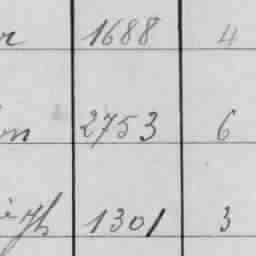 r 1688 4
on 2753 6
1301 3